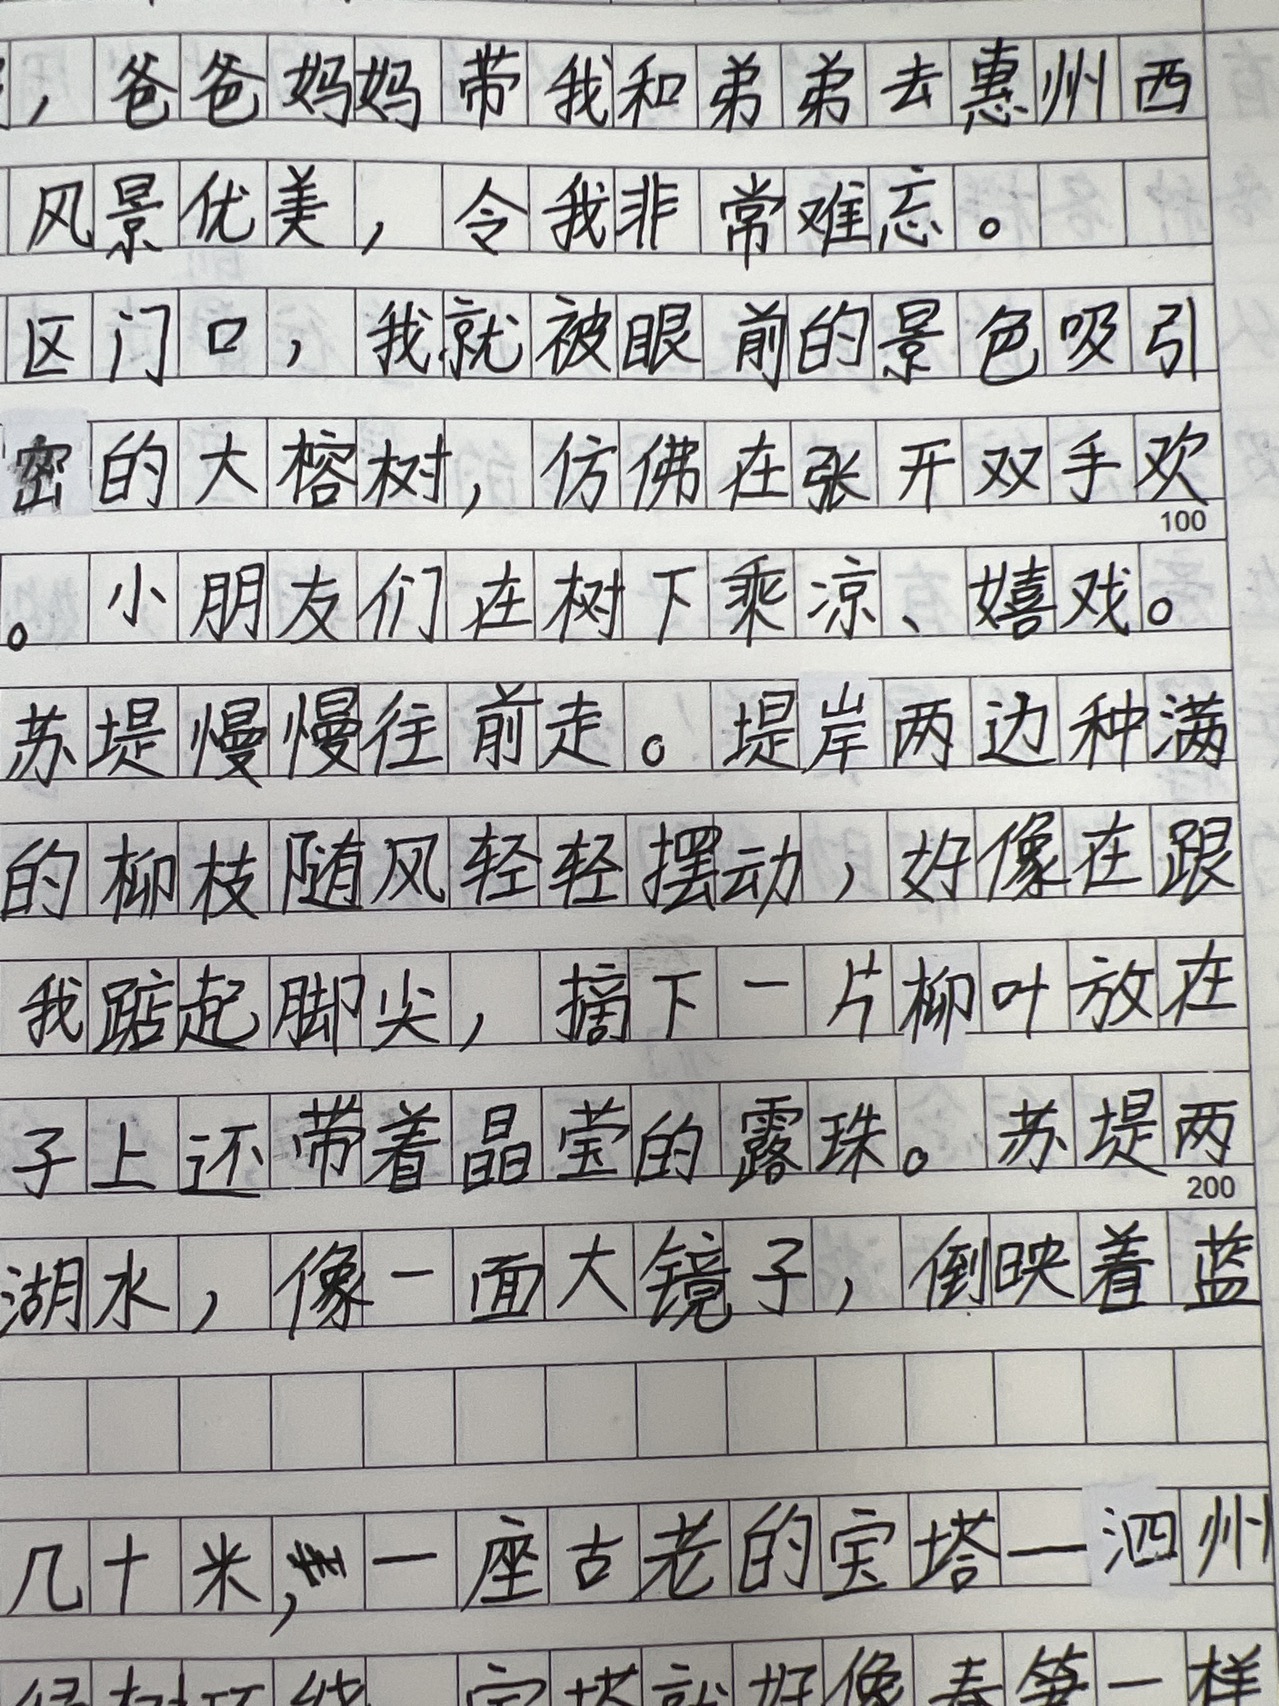 ，爸爸妈妈带我和弟弟去惠州西
风景优美，令我非常难忘。
区门口，我就被眼前的景色吸引
密的大榕树，仿佛在张开双手欢
100
。小朋友们在树下乘凉、嬉戏。
苏堤慢慢往前走。堤岸两边种满
的柳枝随风轻轻摆动，好像在跟
我踮起脚尖，摘下一片柳叶放在
子上还带着晶莹的露珠。苏堤两
200
湖水，像一面大镜子，倒映着蓝
几十米，一座古老的宝塔—泗州
绿树环绕，宝塔就好像春笋一样